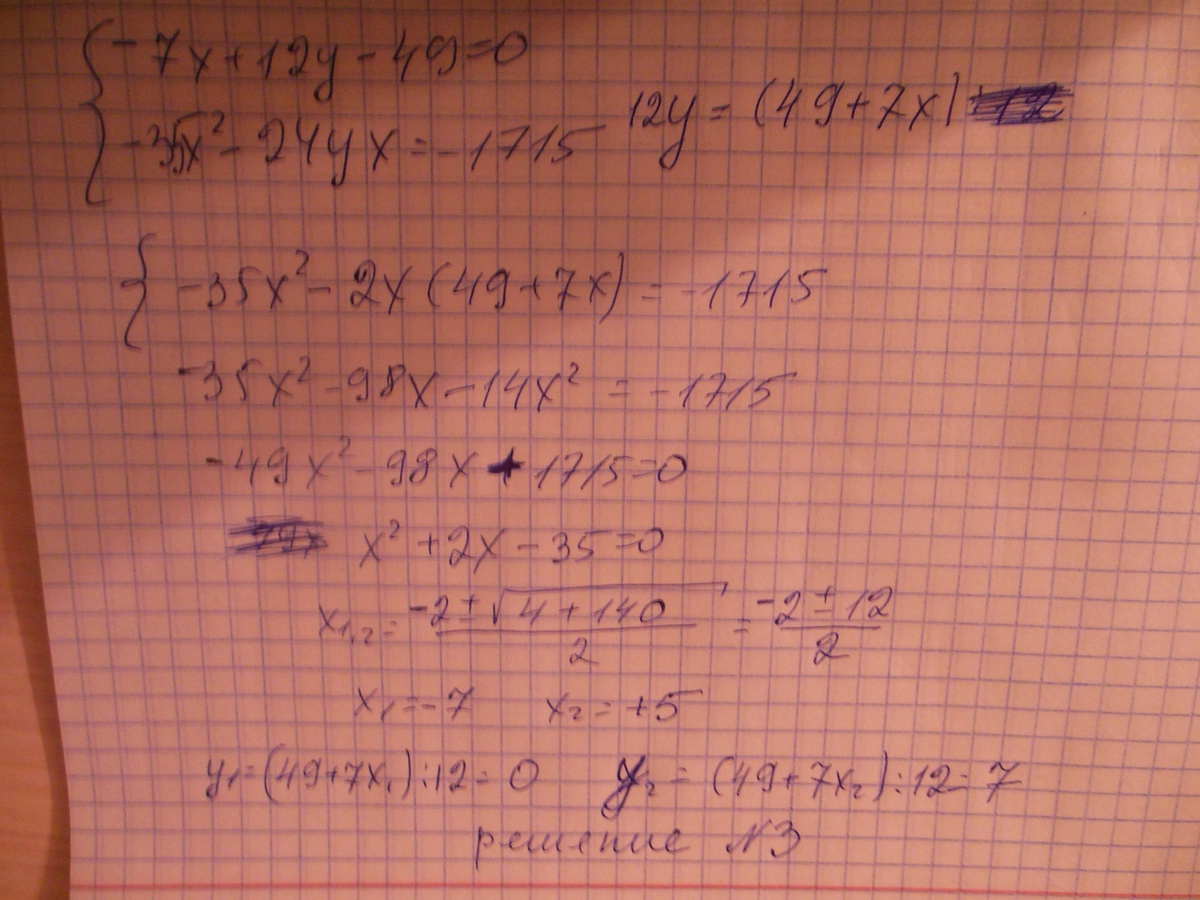 -7x+12y-49=0
12y=(49+7x)
-35x²-24yx=-1715
-35x²-2x(49+7x)=-1715
-35x²-98x-14x²=-1715
-49x²-98x+1715=0
x²+2x-35=0
x₁,₂=(-2±√(4+140))/2=(-2±12)/2
x₁=-7 x₂=+5
y₁=(49+7x₁):12=0 y₂=(49+7x₂):12=7
решение N3